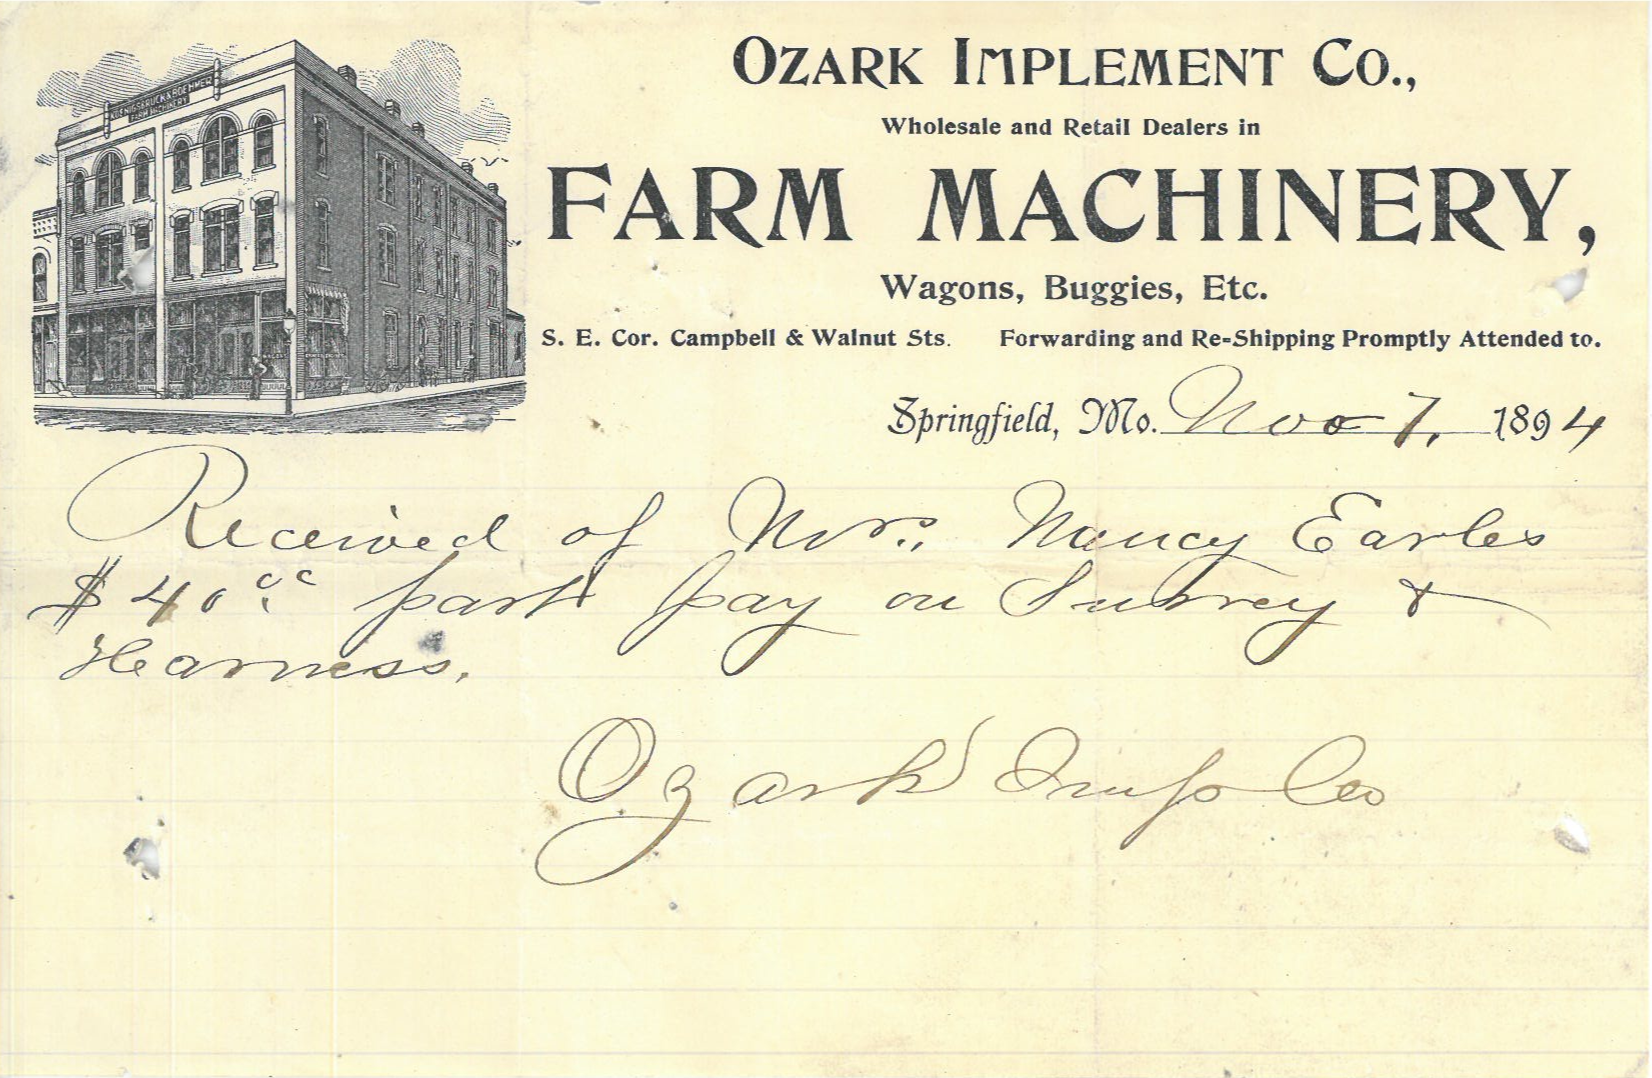 KOENIGSBRUCK & ROEHMER
FARM MACHINERY
OZARK IMPLEMENT CO.,
Wholesale and Retail Dealers in
FARM MACHINERY,
Wagons, Buggies, Etc.
S. E. Cor. Campbell & Walnut Sts. Forwarding and Re-Shipping Promptly Attended to.
Springfield, Mo. Nov 7, 1894
Received of Mrs. Nancy Earles
$40.00 part pay on Surrey &
Harness.
Ozark Imp Co